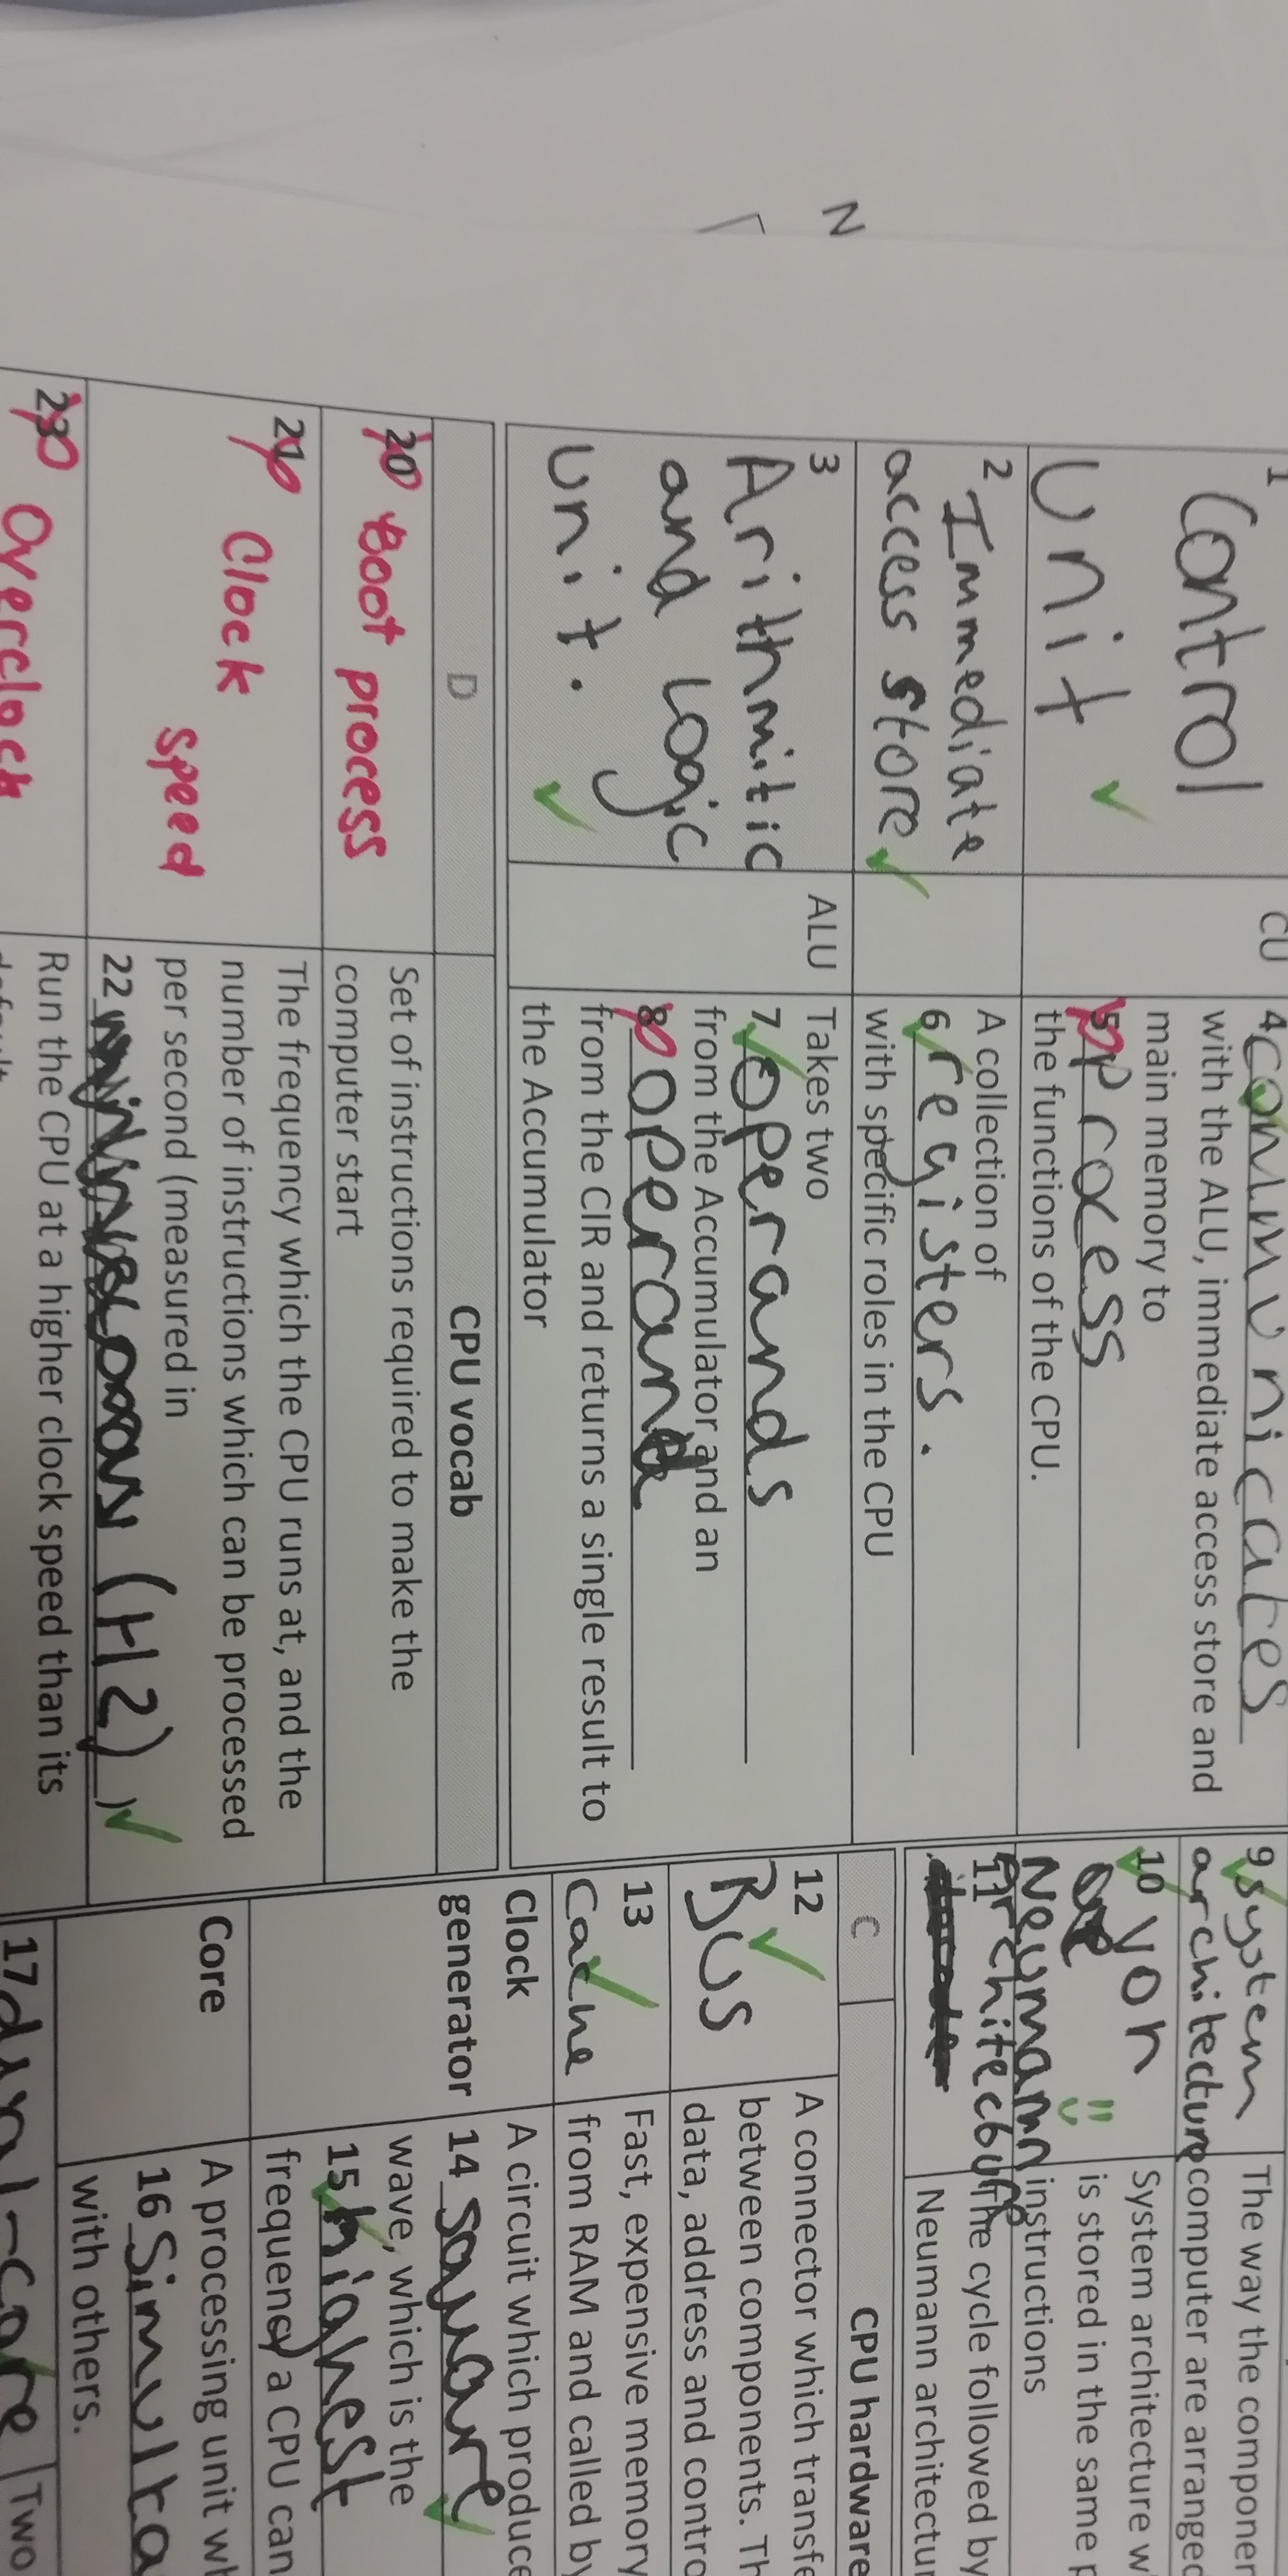 1
Control
unit
CU
4 communicates
with the ALU, immediate access store and
main memory to
5 Process
the functions of the CPU.
2 Immediate
access store
A collection of
6 registers.
with specific roles in the CPU
3
Arithmitic
and Logic
unit.
ALU
Takes two
7 operands
from the Accumulator and an
8 operand
from the CIR and returns a single result to
the Accumulator
D
CPU vocab
20 Boot process
Set of instructions required to make the
computer start
21 Clock
speed
The frequency which the CPU runs at, and the
number of instructions which can be processed
per second (measured in
22 (HZ) )
23 Overclock
Run the CPU at a higher clock speed than its
default
9 system
architecture
The way the componen
computer are arranged
10 von
Neumann
architecture
System architecture w
is stored in the same p
instructions
11
The cycle followed by
Neumann architectur
C
CPU hardware
12
Bus
A connector which transfe
between components. Th
data, address and contro
13
Cache
Fast, expensive memory
from RAM and called by
Clock
generator
A circuit which produce
14 square
wave, which is the
15 highest
frequency a CPU can
Core
A processing unit wh
16 Simulta
with others.
17 dual-core
Two
N